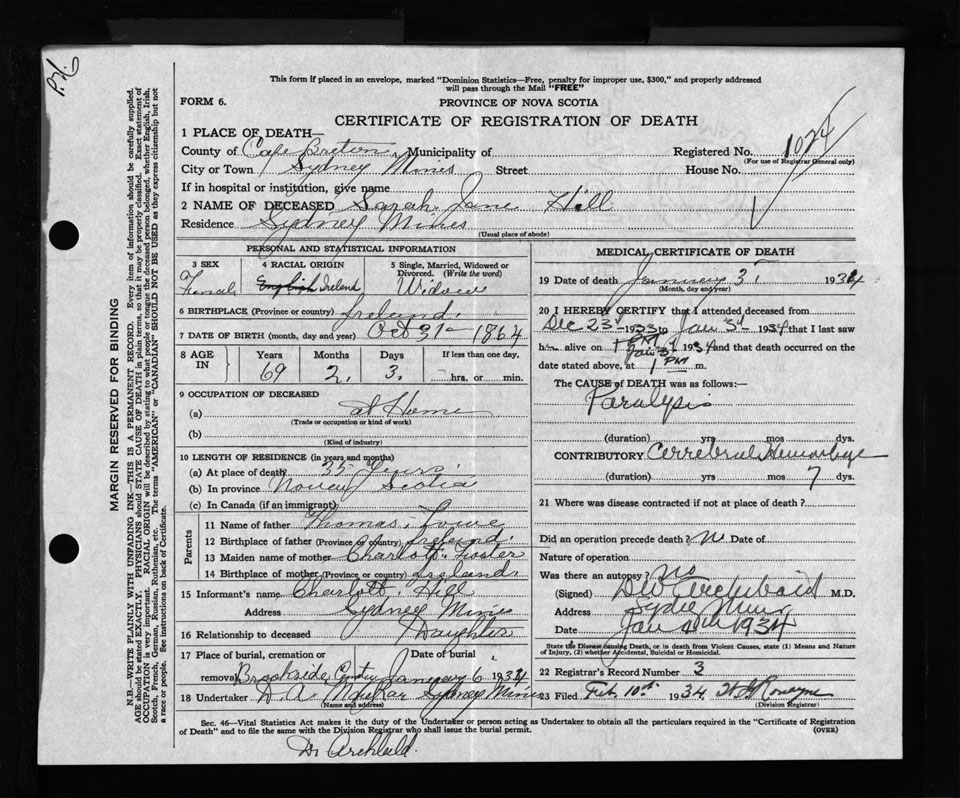 P.H.
This form if placed in an envelope, marked "Dominion Statistics—Free, penalty for improper use, $300," and properly addressed
will pass through the Mail "FREE"
FORM 6.
PROVINCE OF NOVA SCOTIA
CERTIFICATE OF REGISTRATION OF DEATH
1 PLACE OF DEATH—
County of Cape Breton Municipality of Registered No. 1024
(For use of Registrar General only)
City or Town Sydney Mines Street House No.
If in hospital or institution, give name
2 NAME OF DECEASED Sarah Jane Hill
Residence Sydney Mines
(Usual place of abode)
PERSONAL AND STATISTICAL INFORMATION
3 SEX
Female
4 RACIAL ORIGIN
English Ireland
5 Single, Married, Widowed or Divorced. (Write the word)
Widow
6 BIRTHPLACE (Province or country) Ireland.
7 DATE OF BIRTH (month, day and year) Oct 31 - 1864
8 AGE IN
Years Months Days If less than one day,
69 2. 3. hrs. or min.
9 OCCUPATION OF DECEASED
(a) at Home
(Trade or occupation or kind of work)
(b)
(Kind of industry)
10 LENGTH OF RESIDENCE (in years and months)
(a) At place of death 35 Years.
(b) In province Novey Scotia
(c) In Canada (if an immigrant)
Parents
11 Name of father Thomas. Lowe
12 Birthplace of father (Province or country) Ireland.
13 Maiden name of mother Charlott. Foster
14 Birthplace of mother (Province or country) Ireland.
15 Informant's name Charlott. Hill
Address Sydney Mines
16 Relationship to deceased Daughter
17 Place of burial, cremation or removal Date of burial
Brookside January 6 1934
18 Undertaker D A Sydney Mines
(Name and address)
MEDICAL CERTIFICATE OF DEATH
19 Date of death January 3 1934
(Month, day and year)
20 I HEREBY CERTIFY that I attended deceased from
Dec 23 1933 to Jan 3 1934 that I last saw
h alive on 1 PM Jan 3 1934 and that death occurred on the
date stated above, at 1 PM m.
The CAUSE of DEATH was as follows:—
Paralysis
(duration) yrs mos dys.
CONTRIBUTORY Cerrebral Hemorhage
(duration) yrs mos 7 dys.
21 Where was disease contracted if not at place of death?
Did an operation precede death? No Date of
Nature of operation
Was there an autopsy? No
(Signed) DW Archibald M.D.
Address Sydney Mines
Date Jan 1934
State the Disease causing Death, or in death from Violent Causes, state (1) Means and Nature
of Injury, (2) whether Accidental, Suicidal or Homicidal.
22 Registrar's Record Number 3
23 Filed Feb 10th 1934
(Division Registrar)
Sec. 46—Vital Statistics Act makes it the duty of the Undertaker or person acting as Undertaker to obtain all the particulars required in the "Certificate of Registration
of Death" and to file the same with the Division Registrar who shall issue the burial permit.
(OVER)
Dr Archibald.
MARGIN RESERVED FOR BINDING
N.B.—WRITE PLAINLY WITH UNFADING INK—THIS IS A PERMANENT RECORD. Every item of information should be carefully supplied.
AGE should be stated EXACTLY. PHYSICIANS should STATE CAUSE OF DEATH in plain terms, so that it may be properly classified. Exact statement of
OCCUPATION is very important. RACIAL ORIGIN will be described by stating to what people or tongue the deceased person belonged, whether English, Irish,
Scotch, French, German, Russian, Ruthenian, etc. The terms "AMERICAN" or "CANADIAN" SHOULD NOT BE USED as they express citizenship but not
a race or people. See instructions on back of Certificate.